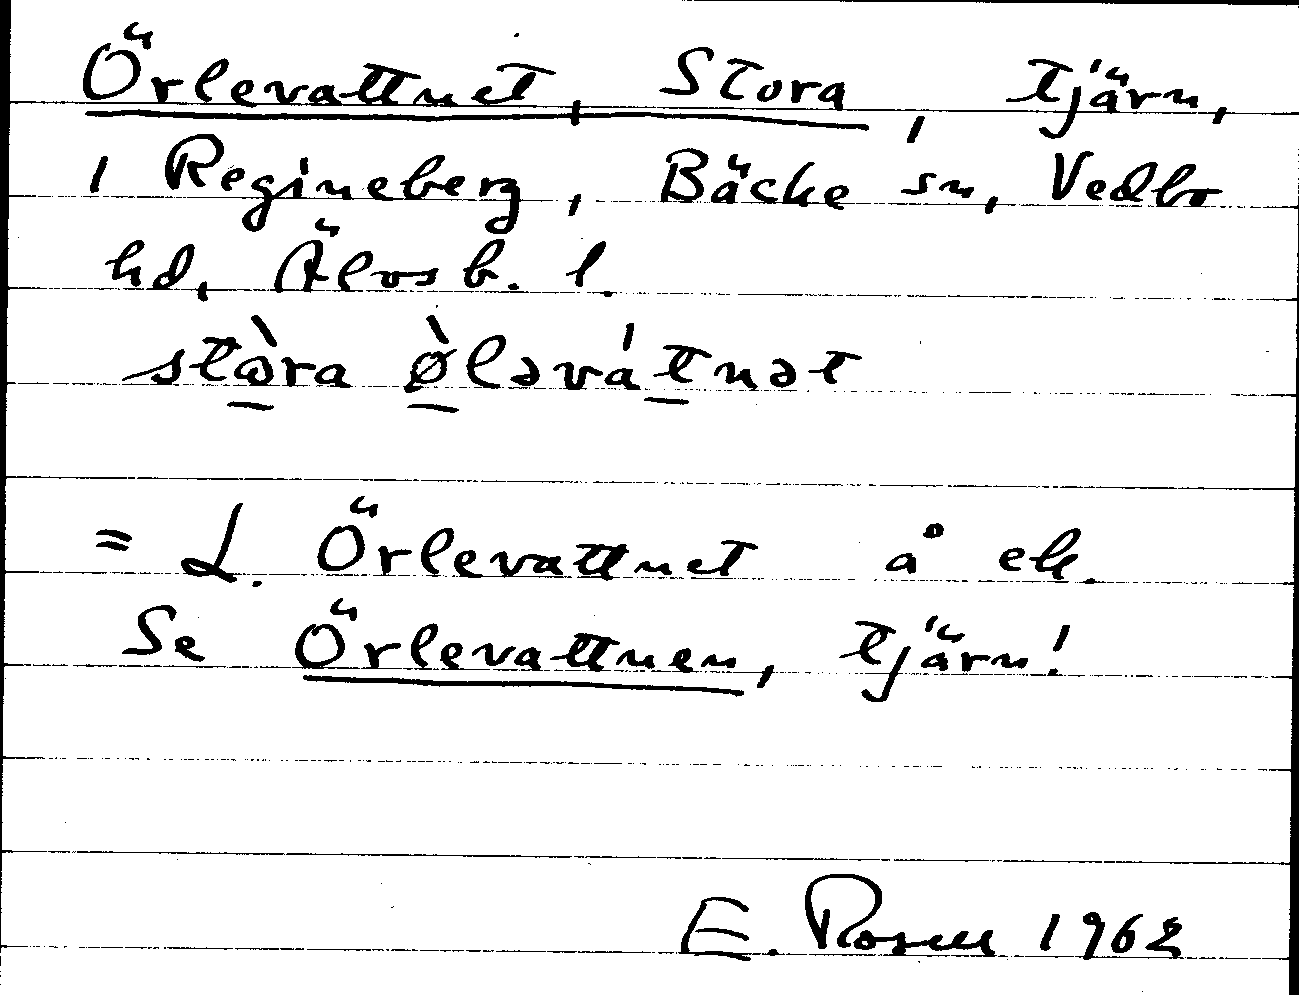 Örlevattnet, Stora, tjärn,
i Regineberg, Bäcke sn, Vedbo
hd, Älvsb. l.
stɷ̀ra ø̀ləvátnət
= L. Örlevattnet å ek.
Se Örlevattnen, tjärn!
E. Rosell 1962